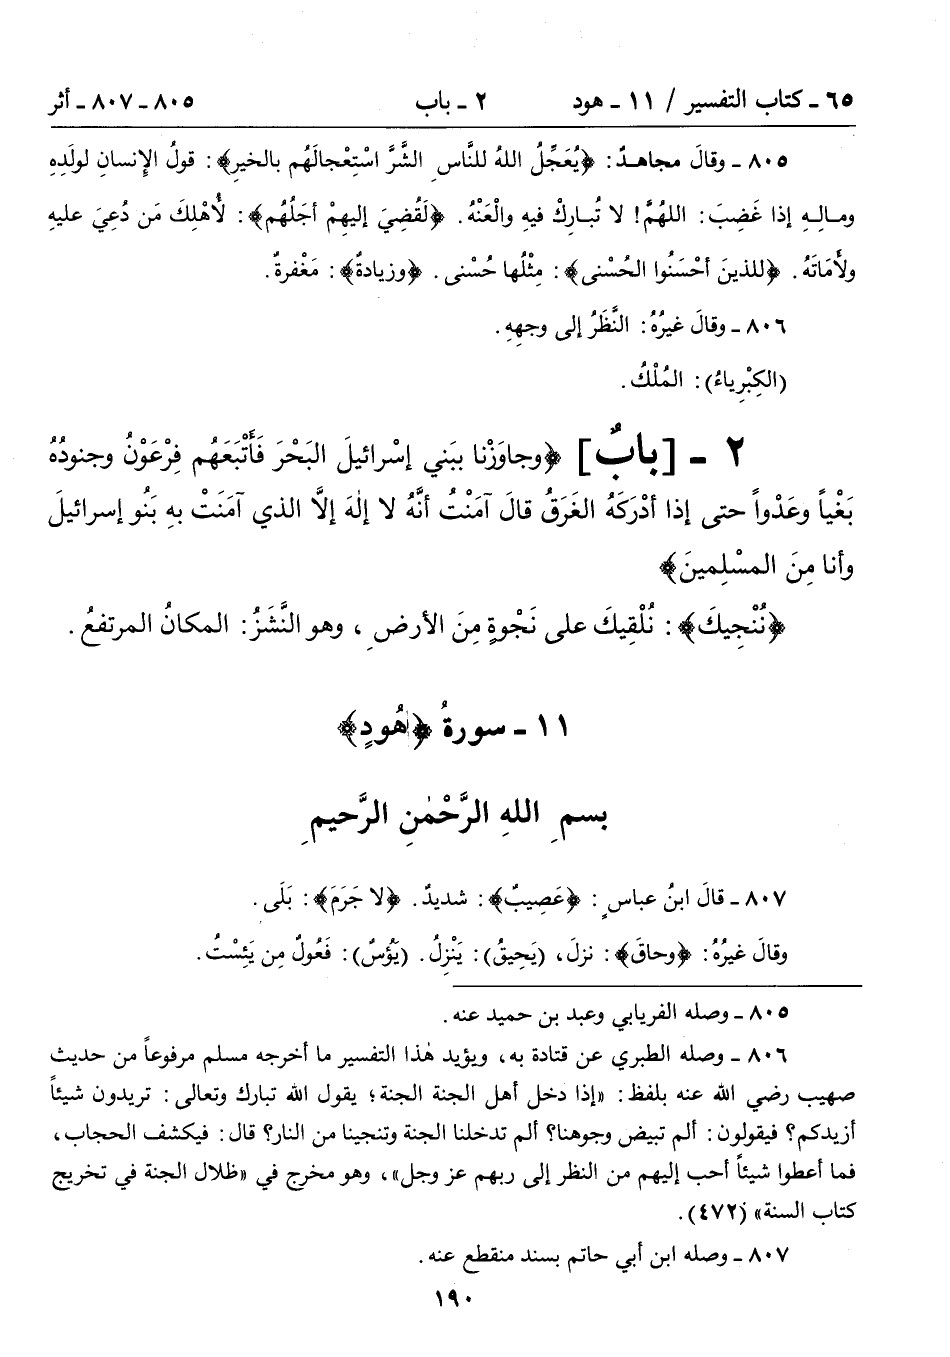 ٦٥ ـ كتاب التفسير / ١١ ـ هود ٢ ـ باب ٨٠٥ ـ ٨٠٧ ـ أثر
٨٠٥ ـ وقالَ مجاهدٌ: ﴿يُعَجِّلُ اللهُ للنَّاسِ الشَّرَّ اسْتِعْجالَهُم بالخيرِ﴾: قولُ الإنسانِ لولَدِهِ
ومالِهِ إذا غَضِبَ: اللهُمَّ! لا تُبارِكْ فيهِ والْعَنْهُ. ﴿لَقُضِيَ إليهِمْ أجَلُهُم﴾: لأُهْلِكَ مَن دُعِيَ عليهِ
ولأَمَاتَهُ. ﴿للذينَ أحْسَنُوا الحُسْنى﴾: مِثْلُها حُسْنى. ﴿وزيادةٌ﴾: مَغْفرةٌ.
٨٠٦ ـ وقالَ غيرُهُ: النَّظَرُ إلى وجهِهِ.
(الكِبْرياءُ): المُلْكُ.
٢ ـ [بابٌ] ﴿وجاوَزْنا ببَني إسْرائيلَ البَحْرَ فَأَتْبَعَهُم فِرْعَوْنُ وجنودُهُ
بَغْياً وعَدْواً حتى إذا أدْرَكَهُ الغَرَقُ قالَ آمَنْتُ أنَّهُ لا إلٰهَ إلَّا الذي آمَنَتْ بهِ بَنُو إسرائيلَ
وأنا مِنَ المسْلِمينَ﴾
﴿نُنْجِيكَ﴾: نُلْقِيكَ على نَجْوةٍ مِنَ الأرضِ، وهو النَّشَزُ: المكانُ المرتفعُ.
١١ ـ سورةُ ﴿هُودٍ﴾
بسمِ اللهِ الرَّحْمٰنِ الرَّحيمِ
٨٠٧ ـ قالَ ابنُ عباسٍ: ﴿عَصِيبٌ﴾: شديدٌ. ﴿لا جَرَمَ﴾: بَلَى.
وقالَ غيرُهُ: ﴿وحاقَ﴾: نزلَ، (يَحِيقُ): يَنْزِلُ. (يَؤُسٌ): فَعُولٌ مِن يَئِسْتُ.
٨٠٥ ـ وصله الفريابي وعبد بن حميد عنه.
٨٠٦ ـ وصله الطبري عن قتادة به، ويؤيد هٰذا التفسير ما أخرجه مسلم مرفوعاً من حديث
صهيب رضي الله عنه بلفظ: «إذا دخل أهل الجنة الجنة؛ يقول الله تبارك وتعالى: تريدون شيئاً
أزيدكم؟ فيقولون: ألم تبيض وجوهنا؟ ألم تدخلنا الجنة وتنجينا من النار؟ قال: فيكشف الحجاب،
فما أعطوا شيئاً أحب إليهم من النظر إلى ربهم عز وجل»، وهو مخرج في «ظلال الجنة في تخريج
كتاب السنة» (٤٧٢).
٨٠٧ ـ وصله ابن أبي حاتم بسند منقطع عنه.
١٩٠